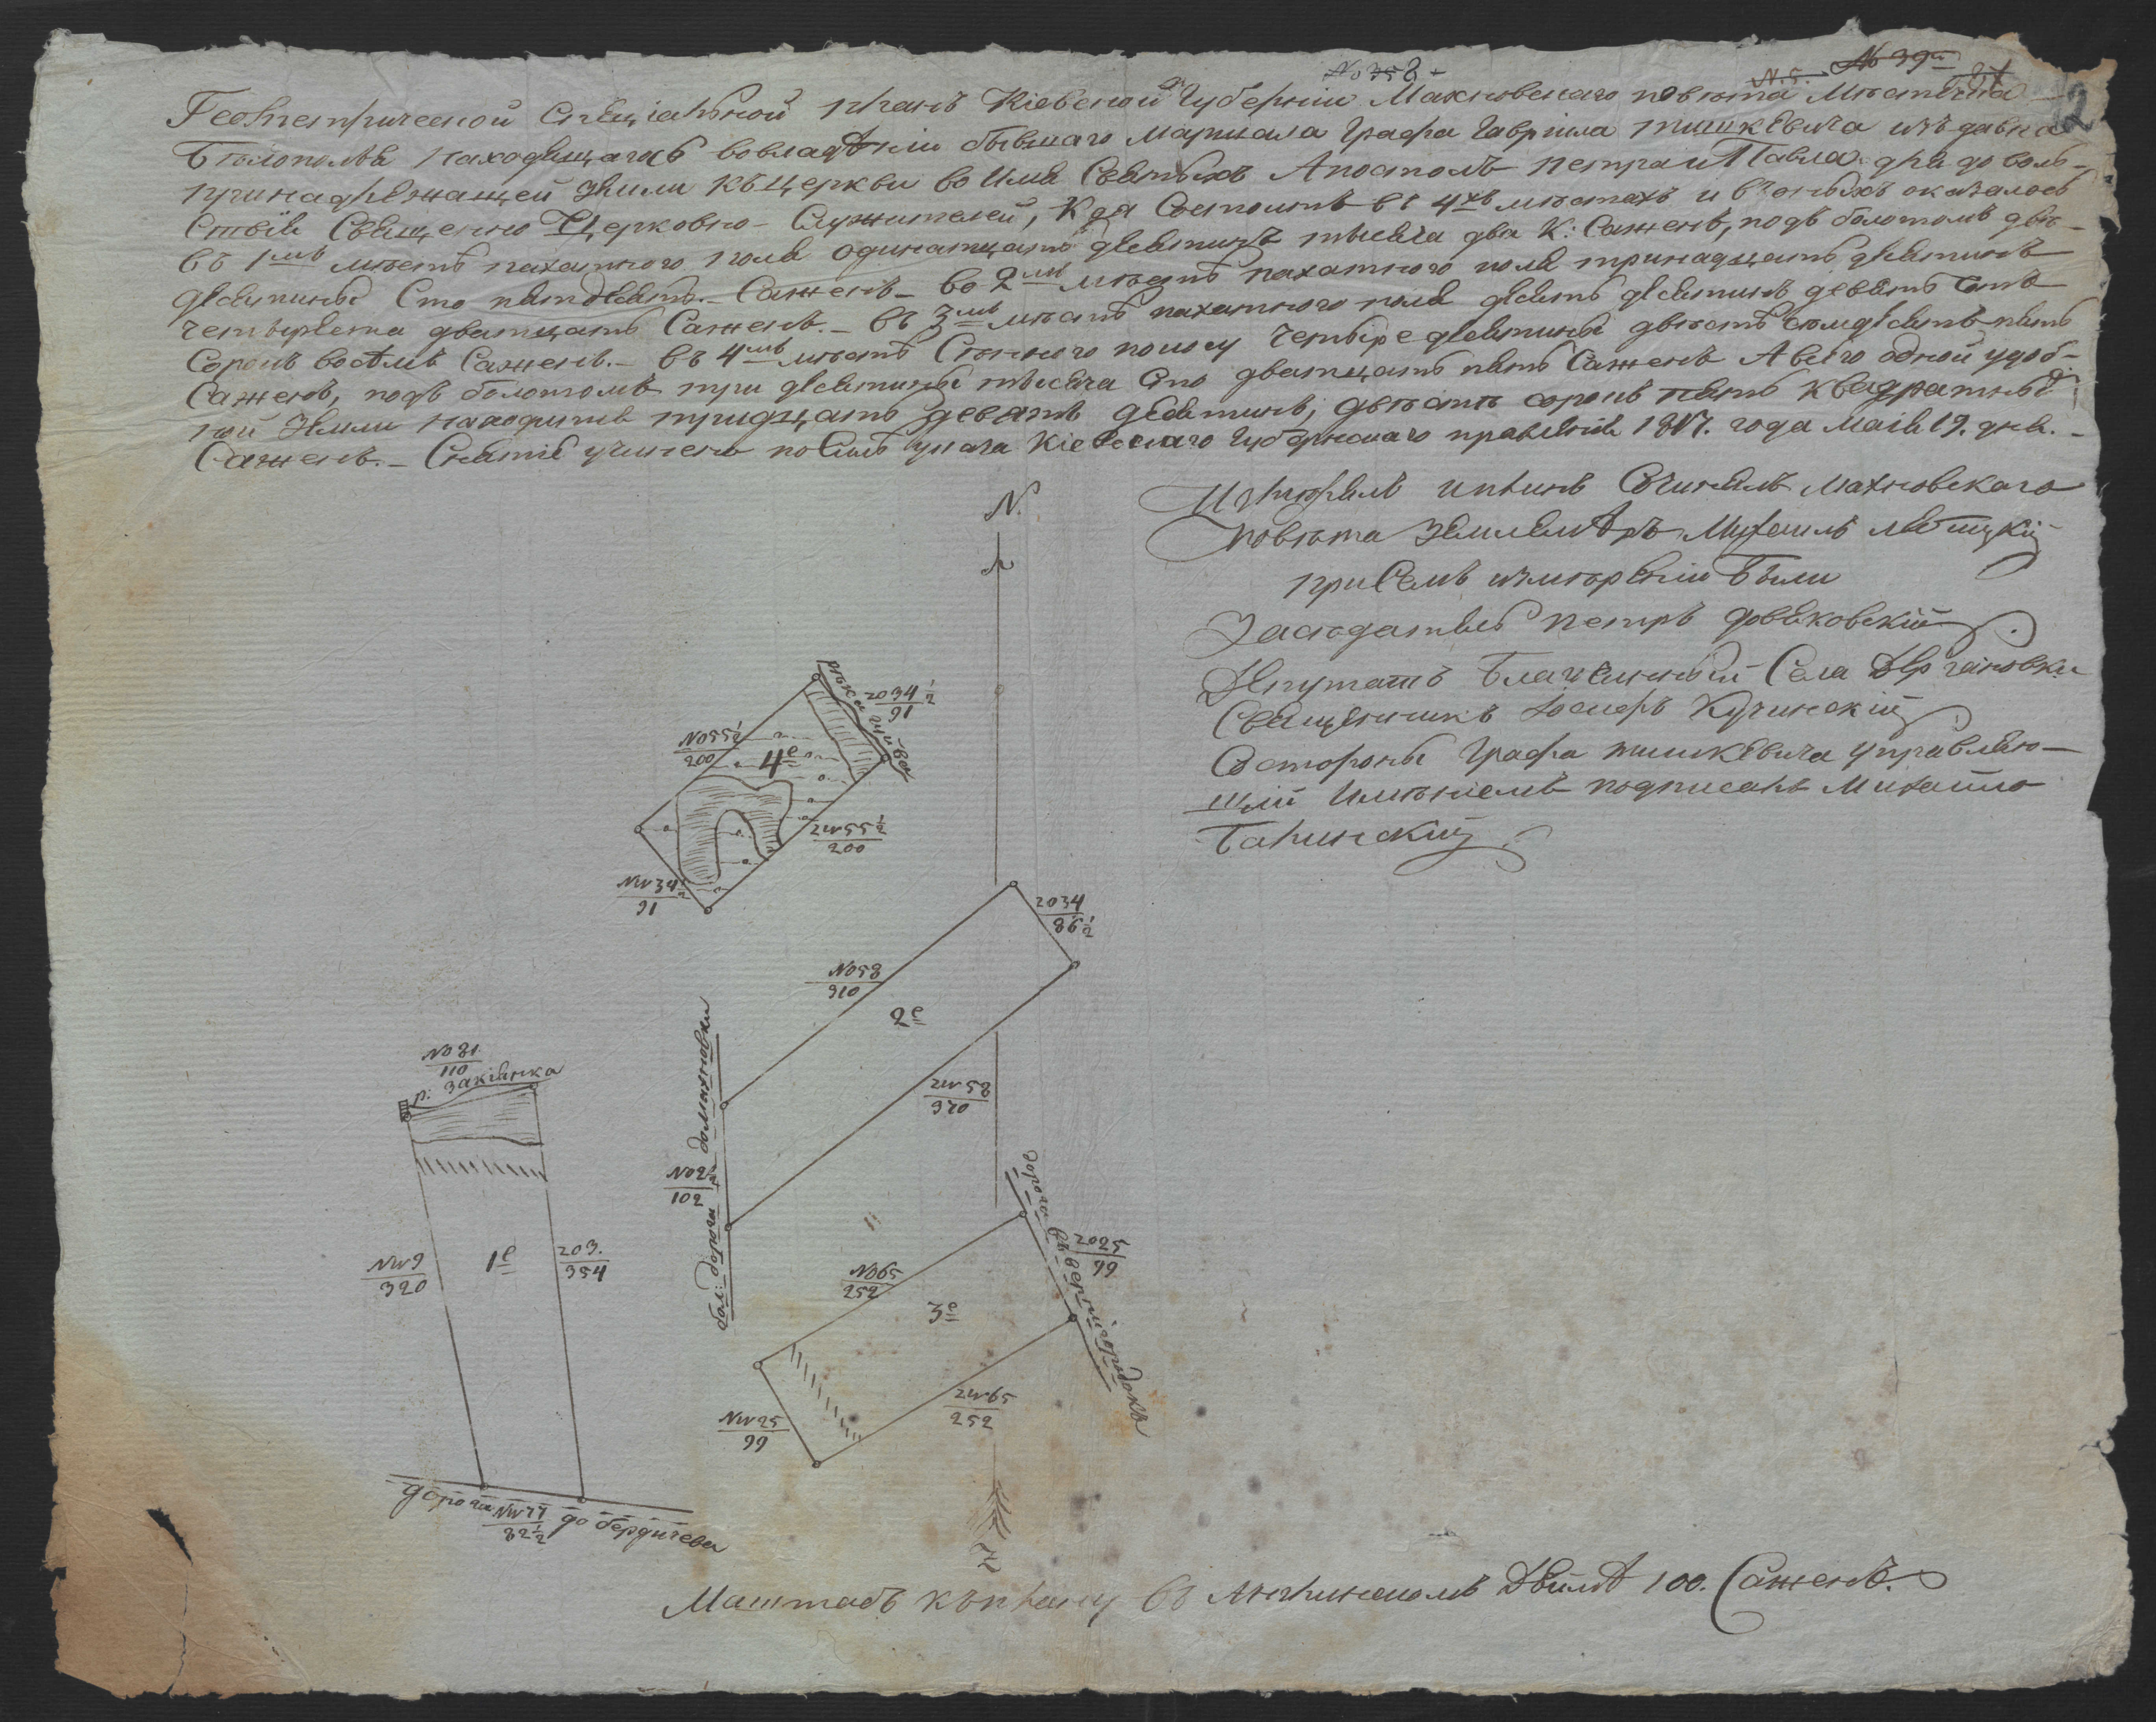 № 358
N. 5. № 39й
87
2
Геометрической спеціальной планъ Кіевской Губерніи Махновскаго повѣта Мѣстечка
Бѣлополя находящагось во владѣніи бывшаго Маршала Графа Гавріила Тишкевича изъ давна
принадлежащей земли къ церкви во имя Святыхъ Апостолъ Петра и Павла для доволь-
ствія Священно Церковно-Служителей, коя состоитъ въ 4хъ мѣстахъ и въ оныхъ оказалось
въ 1мъ мѣстѣ пахатного поля одинатцать десятинъ тысяча два К: Саженъ, подъ болотомъ двѣ
десятины сто пятдесятъ Саженъ – во 2мъ мѣстѣ пахатного поля тринадцать десятинъ
четыреста дватцать Саженъ. – въ 3мъ мѣстѣ пахатного поля десять десятинъ девять сотъ
сорокъ восемъ Саженъ. – въ 4мъ мѣстѣ сѣнного покосу четыре десятины двѣстѣ семдесятъ пять
Саженъ, подъ болотомъ три десятины тысяча сто дватцать пять Саженъ А всего одной удоб-
ной земли находится тридцать девять десятинъ, двѣстѣ сорокъ пять квадратных
Саженъ. – Снятіе учинено по силѣ указа Кіевскаго Губернскаго правленія 1817. года Маія 19. дня. –
Измѣрялъ и планъ Сочинялъ Махновскаго
повѣта Землемѣръ Михаилъ
при Семъ измѣреніи были
Засѣдатель Петръ
Депутатъ Благочинный Села
Священникъ Іосифъ Кучинскій
Со стороны Графа Тишкевича управляю-
щій имѣніемъ подписалъ Михайло
N.
NO55½
200
4е
ZO34½
91
ZW55½
200
NW34½
91
ZO34
86½
NO58
310
2е
ZW58
370
бол: дорога до Махновки
NO2½
102
NO81.
110
р: Закіянка
NW9
320
1е
ZO3.
354
дорога до бердичева
NW77
82½
NO65
252
3е
ZO25
99
ZW65
252
NW25
99
Z
Маштабъ къ плану въ Англинскомъ Дюймѣ 100. Саженъ.